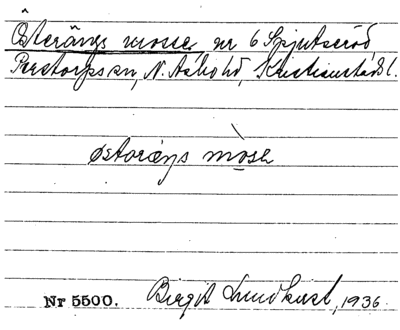 Österängs mosse nr 6 Spjutseröd,
Perstorps sn, N. Åsbo hd, Kristianstads l.
østoræŋs mosɛ
Nr 5500. Birgit Lundkvist, 1936.